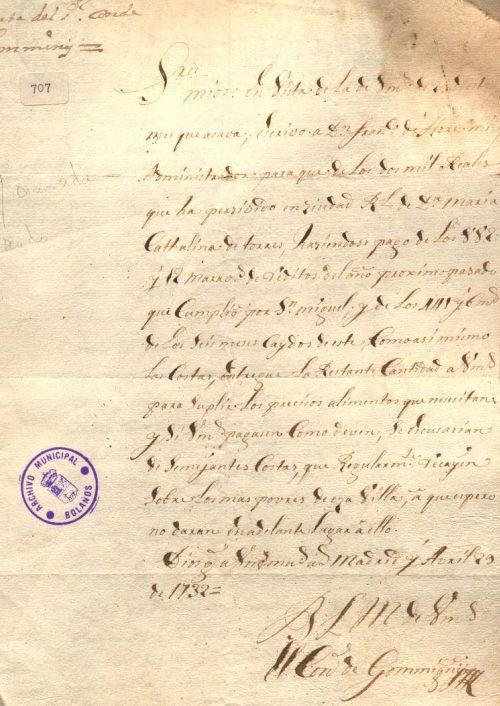 del Sr. Conde
Gomminy =
707
Encomienda
Sres
mios: en vista de la de Vmds de
mes que acava, escrivo a Dn. Franco. de mi
Administrador para que de los dos mil Reales
que ha perzibido en ziudad Rl. de Da. Maria
Cathalina de torres, haziendose pago de los 882
y 12 maravs. de réditos del año proximo pasado
que Cumplió por Sn. miguel, y de los 441 y 6 ms
de los seis meses Caydos de este, Como asimismo
las Costas, entregue la Restante Cantidad a Vmds
para suplir los precisos alimentos que nezesitan
y si Vmds pagasen Como deven, se escusarian
de semejantes Costas, que Regularmte. Recayen
sobre los mas povres de esa Villa, a que espero
no daran en adelante lugar a ello.
Dios ge. a Vmds ms. as. Madrid y Avril 29
de 1732 =
B L M de Vmds
El Conde de Gomminy
ARCHIVO MUNICIPAL
BOLAÑOS